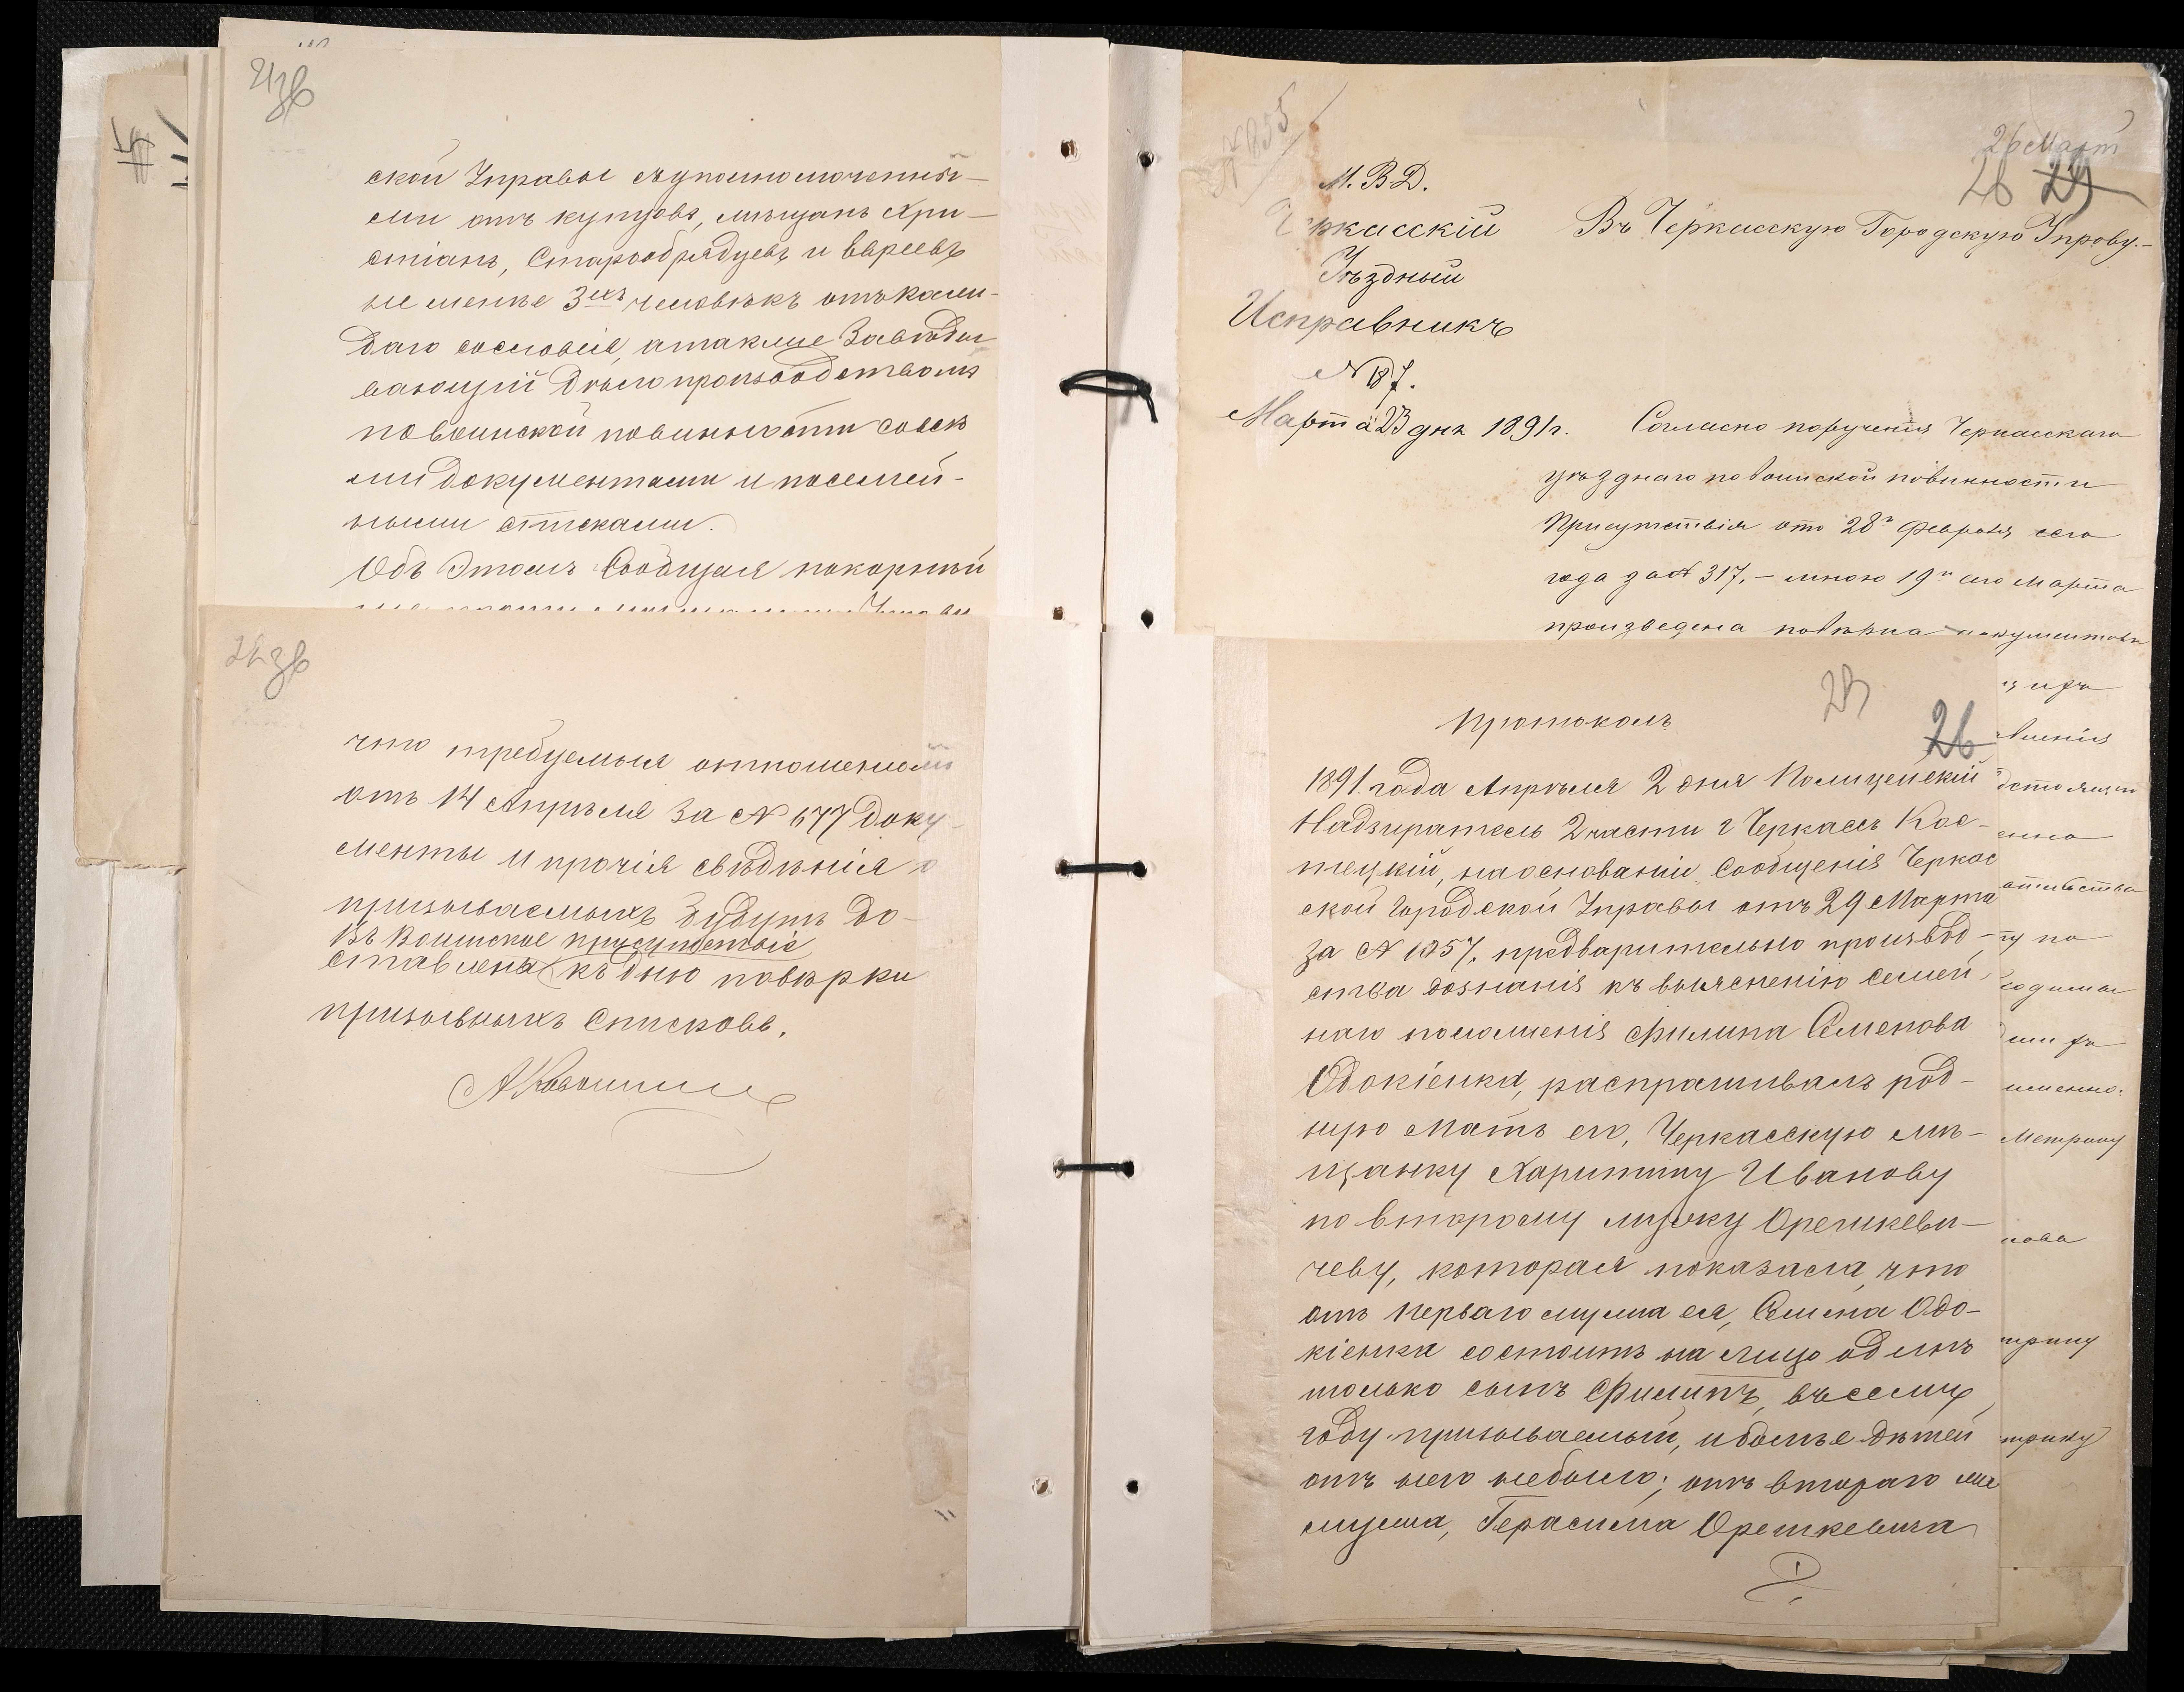 21 зв
ской Управы съ уполномоченны-
ми отъ купцовъ, мѣщанъ Хри-
стіанъ, Старообрядцевъ и Евреевъ
не менѣе 3хъ человѣкъ отъ каж-
даго сословія, а также Завѣды
вающій дѣлопроизводствомъ
по воинской повинности со всѣ
ми документами и посемей-
ными списками.
Объ этомъ Сообщая покорнѣй
22 зв
что требуемыя отношеніемъ
отъ 14 Апрѣля за № 677 доку-
менты и прочія свѣдѣнія о
призываемыхъ будутъ до-
въ воинское присутствіе
ставлены къ дню повѣрки
призывныхъ списковъ.
№ 955
26 Март
28 29
М. В. Д.
Черкасскій
Уѣздный
Исправникъ
№ 187.
Марта 23 дня 1891 г.
Въ Черкасскую Городскую Управу.-
Согласно порученія Черкасскаго
уѣзднаго по воинской повинности
Присутствія отъ 28го Февраля сего
года за № 317, - мною 19го сего Марта
произведена повѣрка документовъ
Протоколъ
23
26
1891 года Апрѣля 2 дня Полицейскій
Надзиратель 2 части г Черкассъ Кос-
тецкій, на основаніи Сообщенія Черкас
ской Городской Управы отъ 29 Марта
за № 1057, предварительно производ-
ства дознанія къ выясненію семей
наго положенія Филипа Семенова
Одокіенка, распрашивалъ род-
ную мать его, Черкасскую мѣ-
щанку Харитину Иванову
по второму мужу Орешкеви-
чеву, которая показала, что
отъ перваго мужа ея, Семена Одо-
кіенка состоитъ на лицо одинъ
только сынъ Филипъ, въ семъ
году призываемый, и болѣе дѣтей
отъ него не было; отъ втораго же
мужа, Герасима Орешкевича